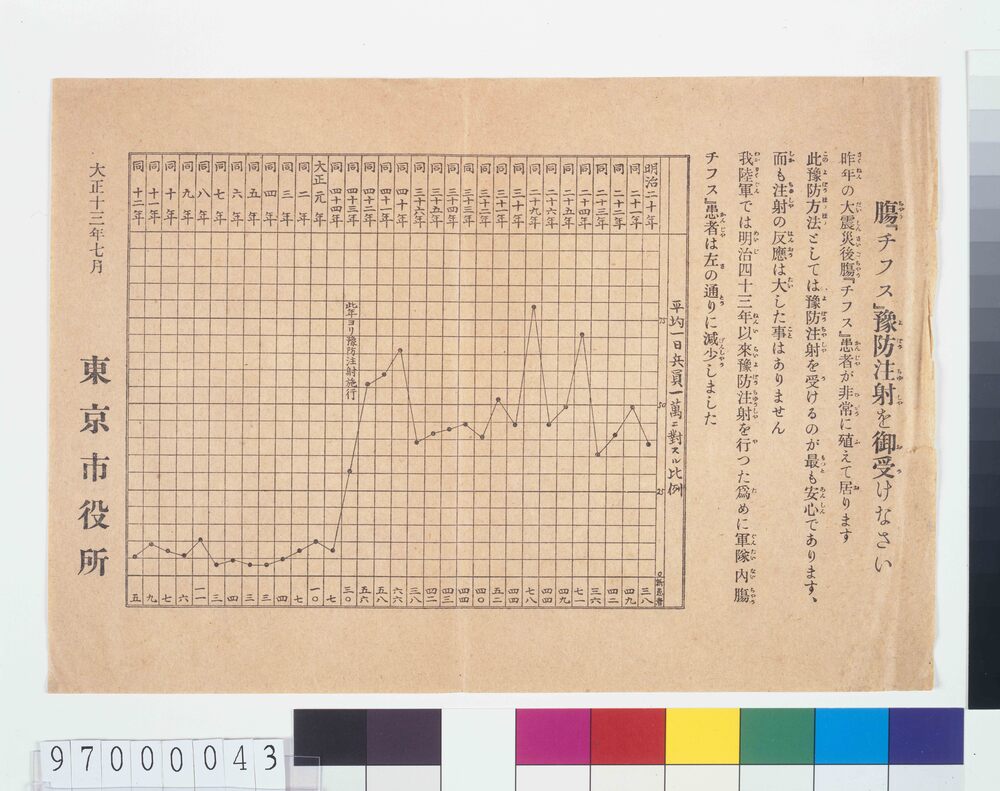 腸『チフス』豫防注射を御受けなさい
昨年の大震災後腸『チフス』患者が非常に殖えて居ります
此豫防方法としては豫防注射を受けるのが最も安心であります、
而も注射の反應は大した事はありません
我陸軍では明治四十三年以來豫防注射を行つた爲めに軍隊內腸
チフス』患者は左の通りに減少しました
平均一日兵員一萬ニ對スル比例
75
50
25
明治二十年
同二十一年
同二十二年
同二十三年
同二十四年
同二十五年
同二十六年
同二十九年
同三十年
同三十一年
同三十二年
同三十三年
同三十四年
同三十五年
同三十六年
同四十年
同四十一年
同四十二年
同四十三年
同四十四年
大正元年
同二年
同三年
同四年
同五年
同六年
同七年
同八年
同九年
同十年
同十一年
同十二年
此年ヨリ豫防注射施行
三八
四九
四二
三六
七一
四九
四四
七八
四四
五二
四〇
四四
四三
四二
三八
六六
五八
五六
三〇
七
一〇
七
四
三
三
四
三
一一
六
七
九
五
大正十三年七月
東京市役所
97000043